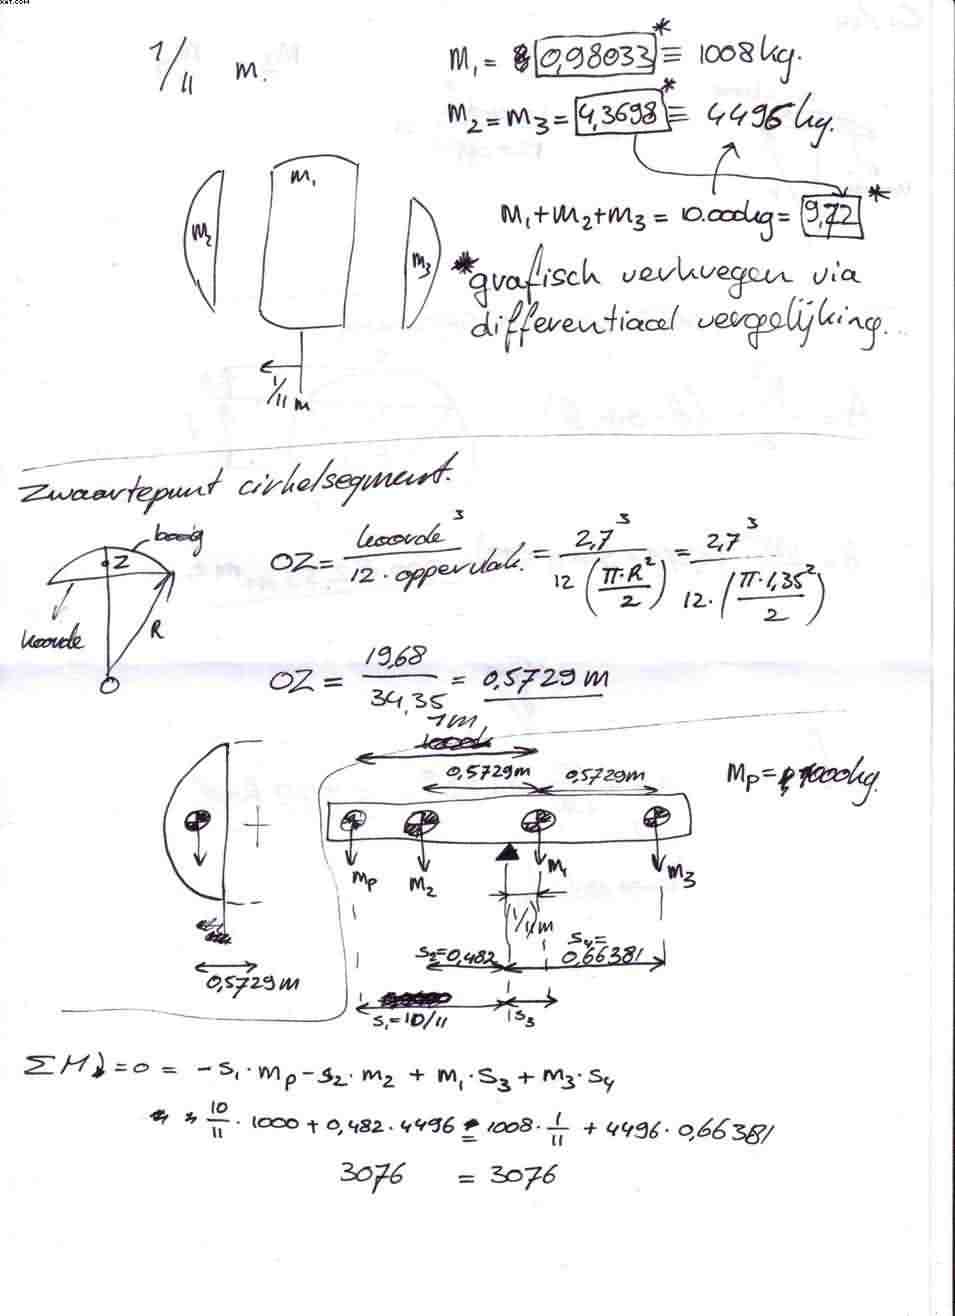 1/11 m.
m₁ = 0,98033* ≡ 1008 kg.
m₂ = m₃ = 4,3698* ≡ 4496 kg.
m₁
m₂
m₃
m₁+m₂+m₃ = 10.000kg = 9,72 *
* grafisch verkregen via
differentiaal vergelijking...
1/11 m
Zwaartepunt cirkelsegment.
boog
Z
koorde
R
O
OZ = koorde³ / 12 · oppervlak. = 2,7³ / 12 (π·R² / 2) = 2,7³ / 12·(π·1,35² / 2)
OZ = 19,68 / 34,35 = 0,5729 m
1m
0,5729m
0,5729m
Mp = 1000kg.
Mp
M₂
M₁
M₃
1/11 m
S₂=0,482
S₄=
0,66381
0,5729m
S₁=10/11
S₃
ΣM = 0 = -S₁·mp - S₂·m₂ + m₁·S₃ + m₃·S₄
10/11 · 1000 + 0,482 · 4496 = 1008 · 1/11 + 4496 · 0,66381
3076 = 3076